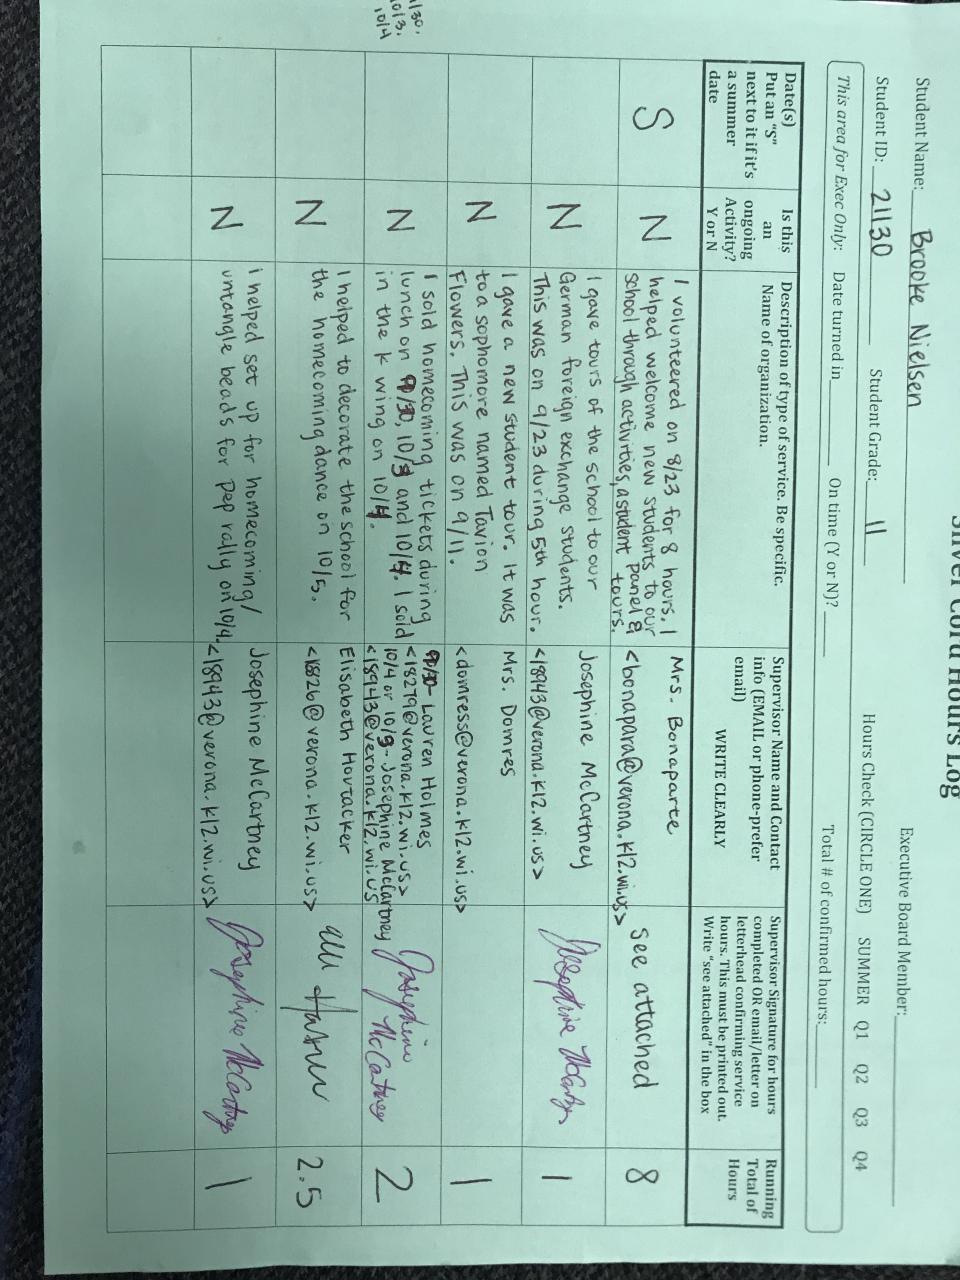 Silver Cord Hours Log
Student Name: Brooke Nielsen
Executive Board Member:
Student ID: 21130 Student Grade: 11
Hours Check (CIRCLE ONE) SUMMER Q1 Q2 Q3 Q4
This area for Exec Only: Date turned in On time (Y or N)? Total # of confirmed hours:
Date(s)
Put an "S"
next to it if it's
a summer
date
Is this
an
ongoing
Activity?
Y or N
Description of type of service. Be specific.
Name of organization.
Supervisor Name and Contact
info (EMAIL or phone-prefer
email)
WRITE CLEARLY
Supervisor Signature for hours
completed OR email/letter on
letterhead confirming service
hours. This must be printed out.
Write "see attached" in the box
Running
Total of
Hours
S
N
I volunteered on 8/23 for 8 hours. I
helped welcome new students to our
school through activities, a student panel &
tours.
Mrs. Bonaparte
<bonapara@verona.k12.wi.us>
see attached
8
N
I gave tours of the school to our
German foreign exchange students.
This was on 9/23 during 5th hour.
Josephine McCartney
<18943@verona.k12.wi.us>
Josephine McCartney
1
N
I gave a new student tour. It was
to a sophomore named Tavion
Flowers. This was on 9/11.
Mrs. Domres
<domress@verona.k12.wi.us>
1
10/3,
10/4
N
I sold homecoming tickets during
lunch on 9/30, 10/3 and 10/4. I sold
in the K wing on 10/4.
9/30- Lauren Holmes
<18279@verona.k12.wi.us>
10/4 or 10/3- Josephine McCartney
<18943@verona.k12.wi.us
Josephine
McCartney
2
N
I helped to decorate the school for
the homecoming dance on 10/5.
Elisabeth Hovtacker
<1826@verona.k12.wi.us>
2.5
N
I helped set up for homecoming/
untangle beads for pep rally on 10/4.
Josephine McCartney
<18943@verona.k12.wi.us>
Josephine McCartney
1